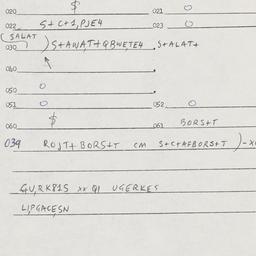 020 $ 021 0
022 S+C+1,PJE4 023 0
(SALAT
030 )S+AWAT+QBWETE4 S+ALAT+
040
050 0
051 0 052 0
060 $ 061 BORS+T
039 ROJT+BORS+T CM S+C+AFBORS+T)-X
GU,RK81S XX QI UGERKES
LIPGACESN